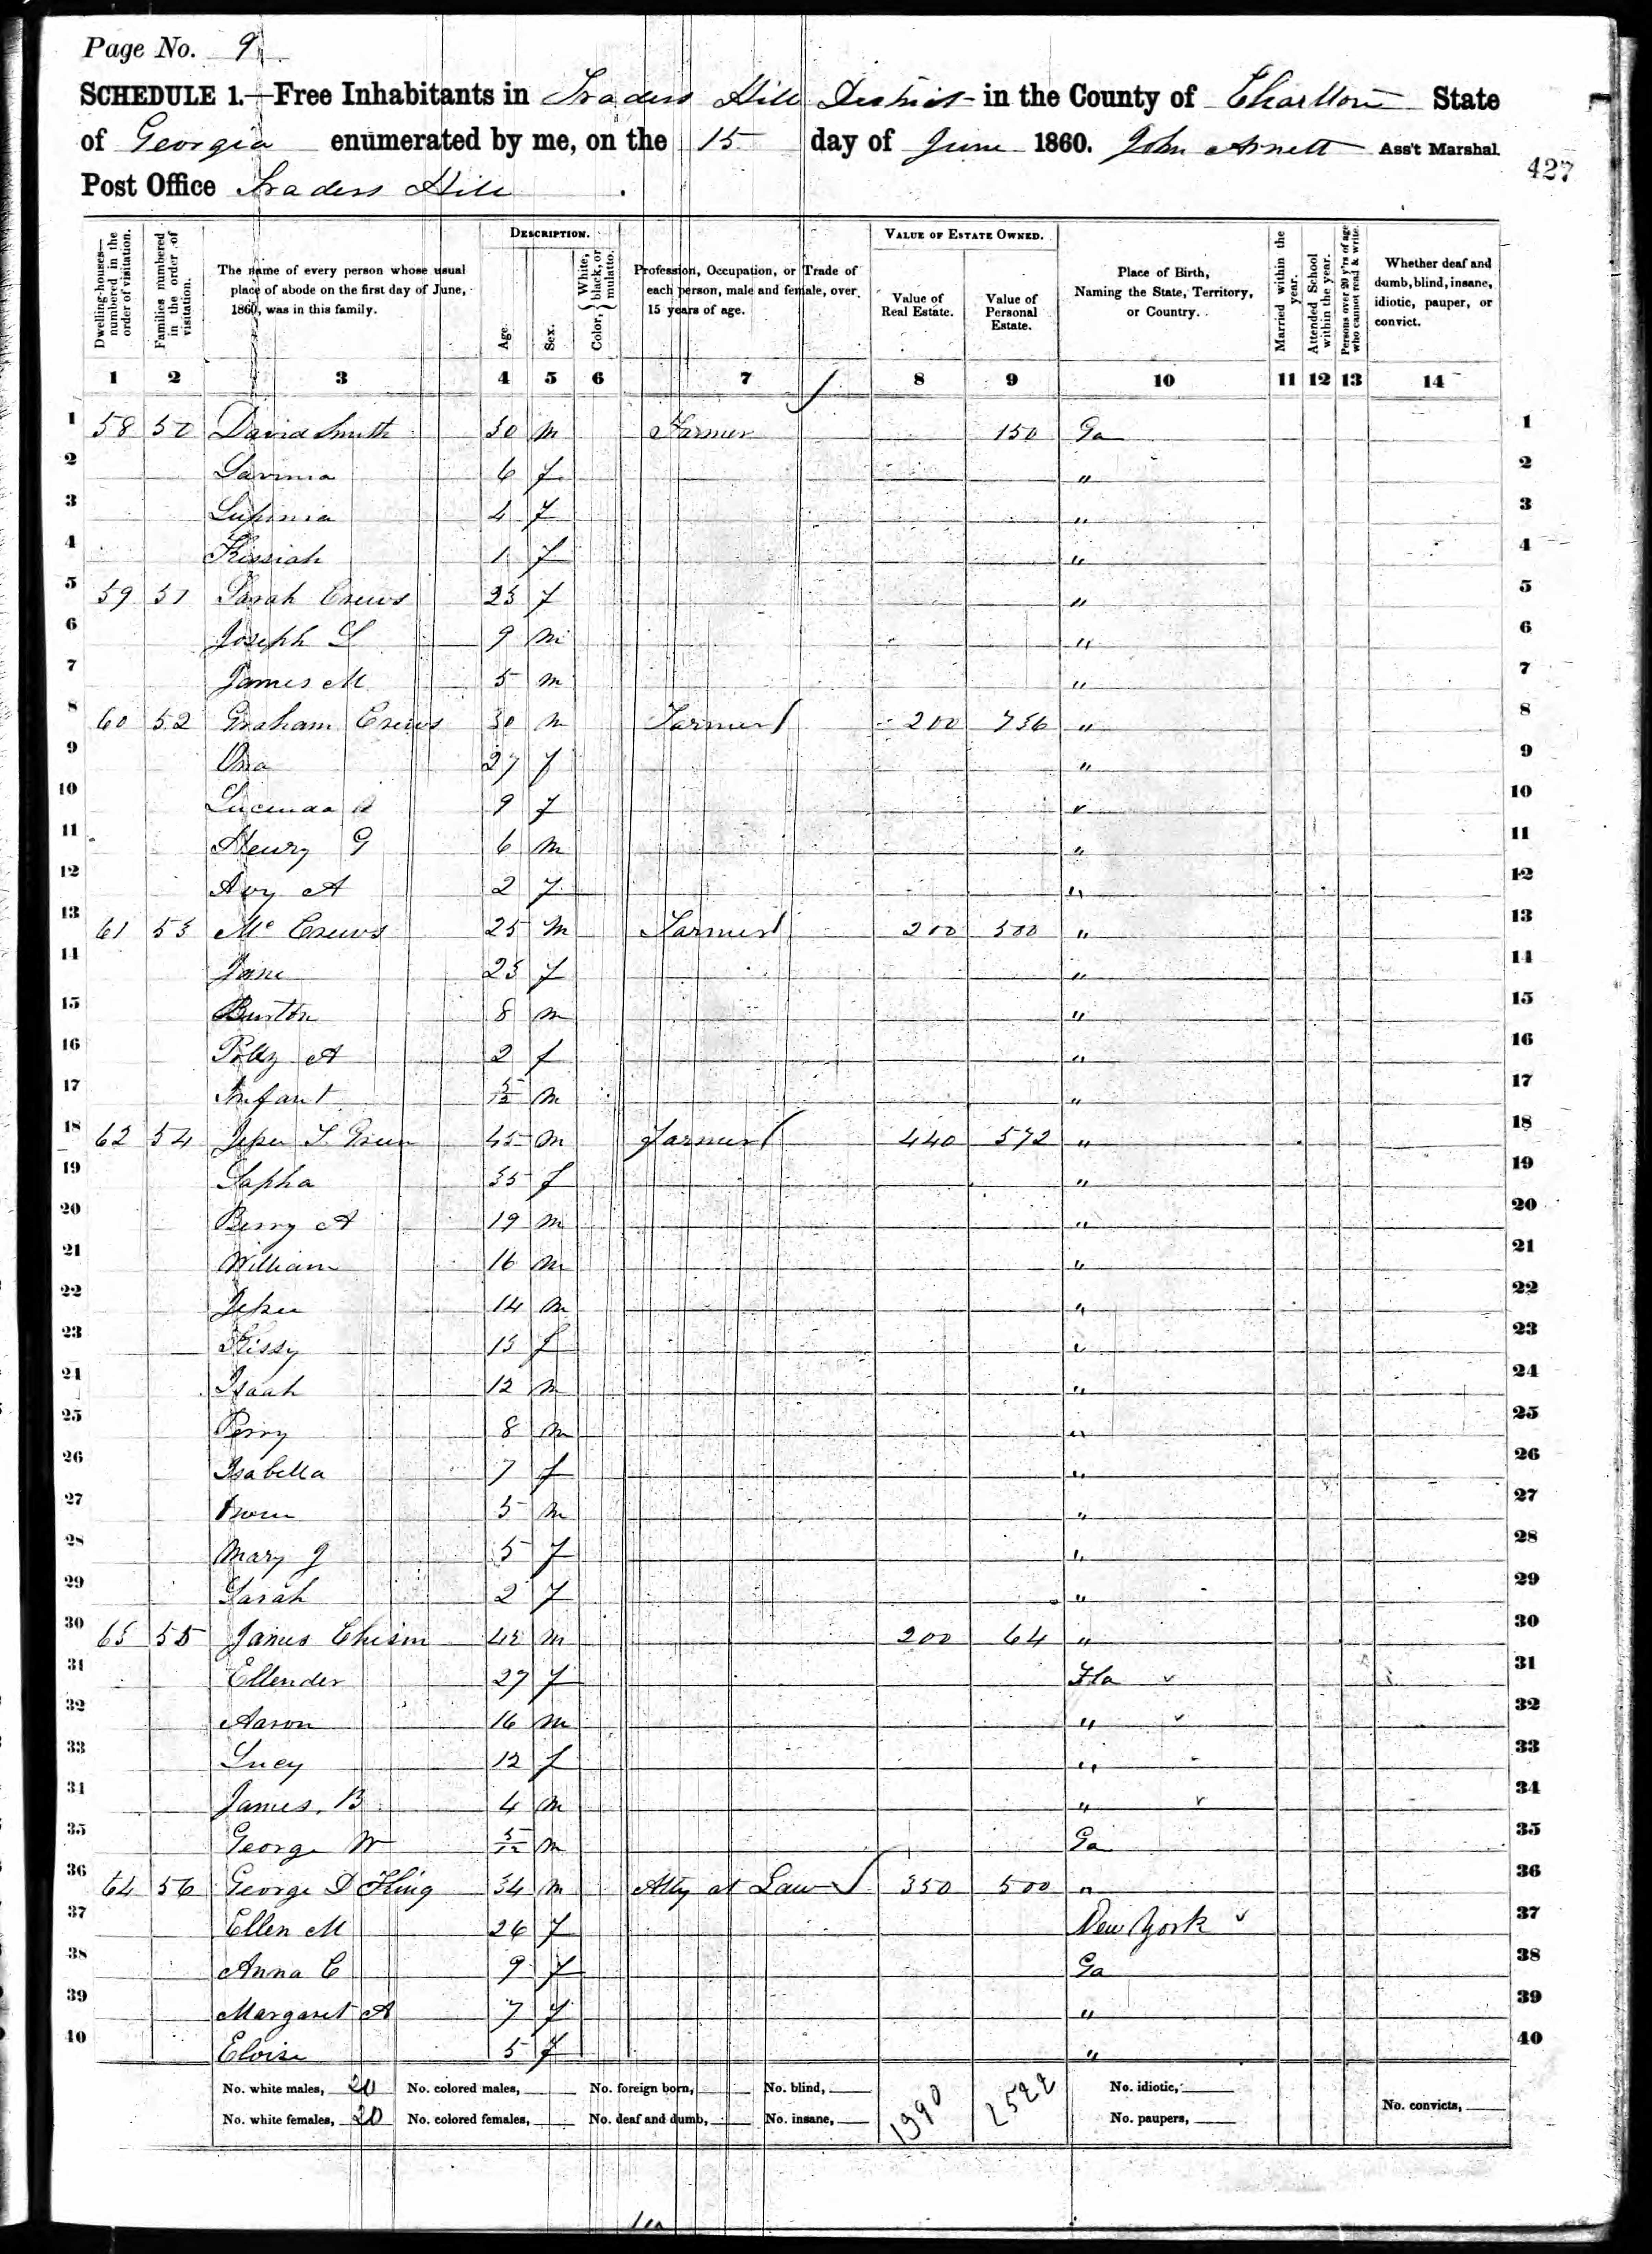 Page No. 9
SCHEDULE 1.—Free Inhabitants in Traders Hill District in the County of Charlton State
of Georgia enumerated by me, on the 15 day of June 1860. John Arnett Ass't Marshal.
427
Post Office Traders Hill .
DESCRIPTION. VALUE OF ESTATE OWNED.
Dwelling-houses—numbered in the order of visitation.
Families numbered in the order of visitation.
The name of every person whose usual place of abode on the first day of June, 1860, was in this family.
Age.
Sex.
Color, { White, black, or mulatto.
Profession, Occupation, or Trade of each person, male and female, over 15 years of age.
Value of Real Estate.
Value of Personal Estate.
Place of Birth, Naming the State, Territory, or Country.
Married within the year.
Attended School within the year.
Persons over 20 y'rs of age who cannot read & write.
Whether deaf and dumb, blind, insane, idiotic, pauper, or convict.
1 2 3 4 5 6 7 8 9 10 11 12 13 14
1 58 50 David Smith 30 m Farmer 150 Ga 1
2 6 f " 2
3 4 f " 3
4 Kissiah 1 f " 4
5 59 51 Sarah Crews 23 f " 5
6 Joseph L 9 m " 6
7 James M 5 m " 7
8 60 52 Graham Crews 30 m Farmer 200 736 " 8
9 Ona 27 f " 9
10 Lucinda 9 f " 10
11 Henry G 6 m " 11
12 Avy A 2 f " 12
13 61 53 Mc Crews 25 m Farmer 200 500 " 13
14 Jane 23 f " 14
15 Burton 8 m " 15
16 Polly A 2 f " 16
17 Infant 5/12 m " 17
18 62 54 Jesse T. Green 45 m Farmer 440 572 " 18
19 Sapha 35 f " 19
20 Berry A 19 m " 20
21 William 16 m " 21
22 Jesse 14 m " 22
23 Kissy 13 f " 23
24 Isaah 12 m " 24
25 Perry 8 m " 25
26 Isabella 7 f " 26
27 5 m " 27
28 Mary J 5 f " 28
29 Sarah 2 f " 29
30 63 55 James Chism 42 m 200 64 " 30
31 Ellender 27 f Fla 31
32 Aaron 16 m " 32
33 Lucy 12 f " 33
34 James. B 4 m " 34
35 George W 5/12 m Ga 35
36 64 56 George D King 34 m Atty at Law 350 500 " 36
37 Ellen M 26 f New York 37
38 Anna C 9 f Ga 38
39 Margaret A 7 f " 39
40 Eloise 5 f " 40
No. white males, 20 No. colored males, No. foreign born, No. blind, 1390 2522 No. idiotic,
No. white females, 20 No. colored females, No. deaf and dumb, No. insane, No. paupers, No. convicts,